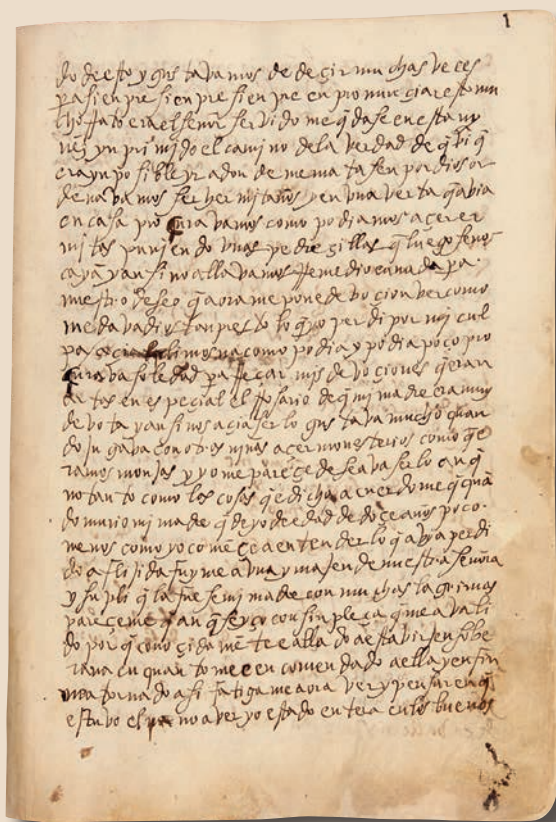 1
do de esto y gustavamos de deçir muchas veces
pa sienpre sienpre sienpre en pronunçiar esto mu
cho rrato era el señor servido me qdase en esta ni
ñez ynprimido el camino de la verdad de q vi q
era ynposible yr adonde me matasen por dios or
denavamos ser hermitaños y en una verta q avia
en casa procuravamos como podiamos açer er
mitas puniendo unas pedreçillas q luego se nos
cayã y ansi no allavamos rremedio en nada pa
nuestro deseo q aora me pone devoçion ver como
me dava dios tan presto lo q yo perdi por mi cul
pa açia limosna como podia y podia poco pro
curava soledad pa rreçar mis devoçiones q eran
artas en especial el rrosario de q mi madre era muy
devota y ansi nos açia serlo gustava mucho quan
do jugava con otras niñas açer monesterios como q e
ramos monjas y yo me pareçe deseava serlo anq
no tanto como las cosas q e dicho acuerdome q quã
do murio mi madre qde yo de edad de doçe años poco
menos como yo comẽçe a entender lo q avia perdi
do aflijida fuyme a una ymajen de nuestra señora
y supliq la fuese mi madre con muchas lagrimas
pareçeme q anq se yço con sinpleça q me a vali
do porq conoçidamẽte e allado a esta virjen sobe
rana en quanto me e encomendado a ella y en fin
me a tornado a si fatigame aora ver y pensar en q
estuvo el no aver yo estado entera en los buenos